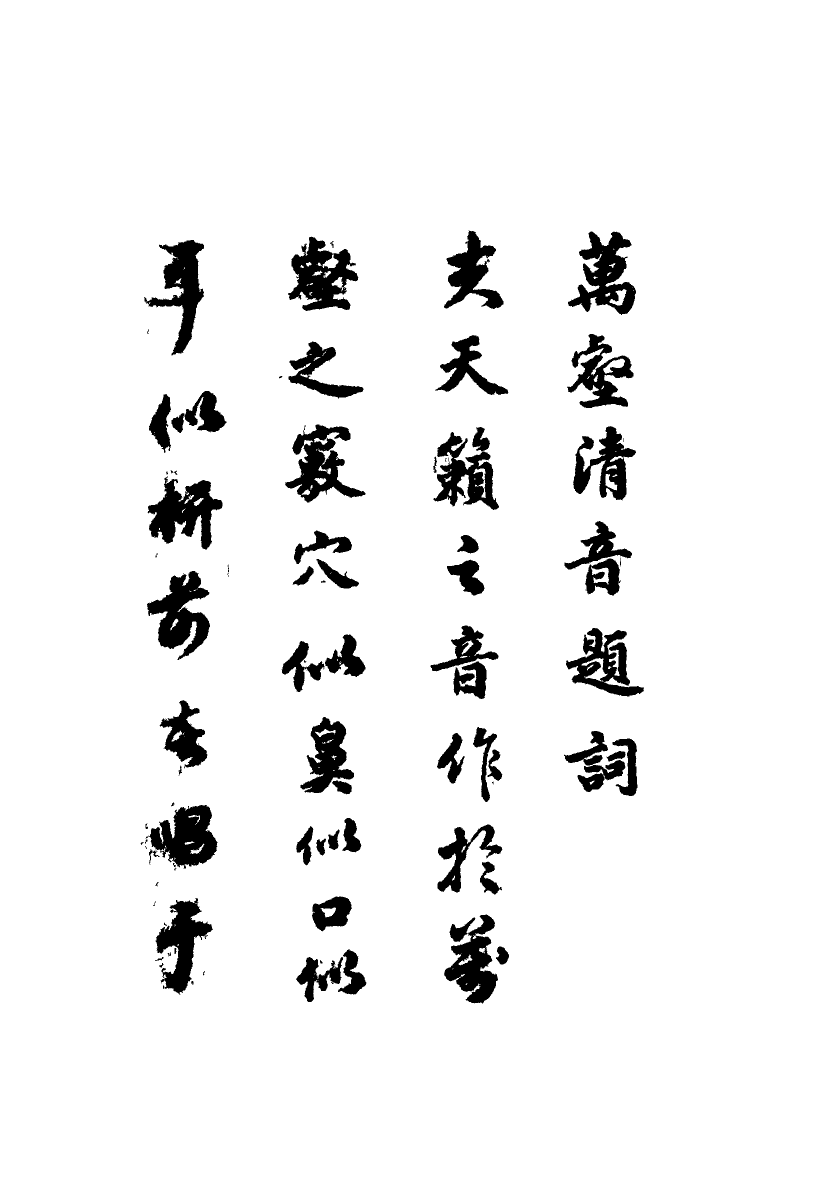 萬壑清音題詞
夫天籟之音作於萬
壑之竅穴似鼻似口似
耳似枅前者唱于